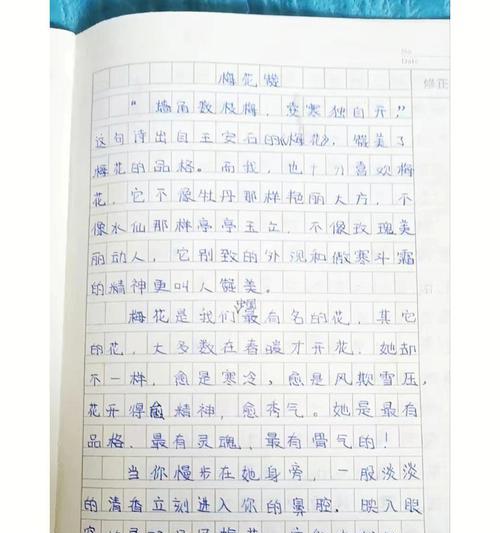 No
Date
修正
梅花赞
“墙角数枝梅，凌寒独自开”
这句诗出自王安石的《梅花》，赞美了
梅花的品格。而我，也十分喜欢梅
花，它不像牡丹那样艳丽大方，不
像水仙那样亭亭玉立，不像玫瑰美
丽动人，它别致的外观和傲寒斗霜
的精神更叫人赞美。
梅花是我们中国最有名的花，其它
的花，大多数在春暖才开花，她却
不一样，愈是寒冷，愈是风欺雪压，
花开得愈精神，愈秀气。她是最有
品格、最有灵魂、最有骨气的！
当你慢步在她身旁，一股淡淡
的清香立刻进入你的鼻腔，映入眼